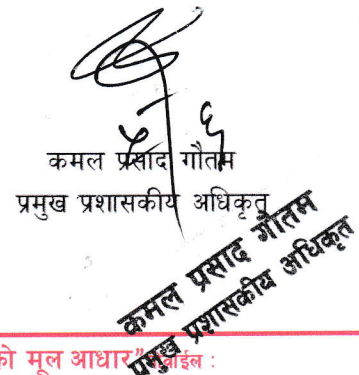 कमल प्रसाद गौतम
प्रमुख प्रशासकीय अधिकृत
कमल प्रसाद गौतम
प्रमुख प्रशासकीय अधिकृत
को मूल आधार" मोबाईल :